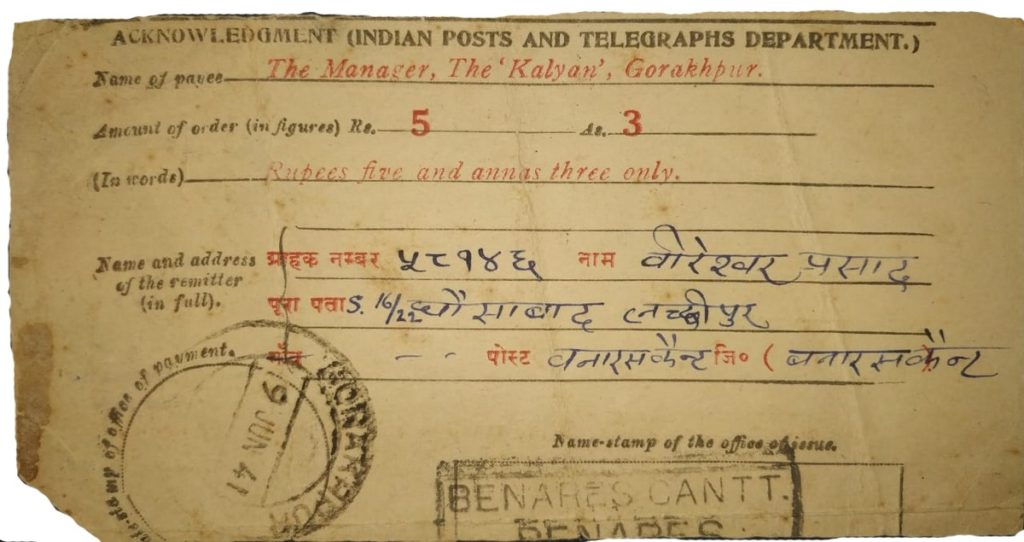 ACKNOWLEDGMENT (INDIAN POSTS AND TELEGRAPHS DEPARTMENT.)
Name of payee The Manager, The 'Kalyan', Gorakhpur.
Amount of order (in figures) Rs. 5 As. 3
(In words) Rupees five and annas three only.
Name and address of the remitter (in full).
ग्राहक नम्बर ५८१४६ नाम वीरेश्वर प्रसाद
पूरा पता S. 16/22 घौसाबाद
गाँव - - पोस्ट बनारसकैन्ट जि० ( बनारसकैन्ट
stamp of office of payment.
GORAKHPUR
9 JUN 41
Name-stamp of the office of issue.
BENARES CANTT.
BENARES